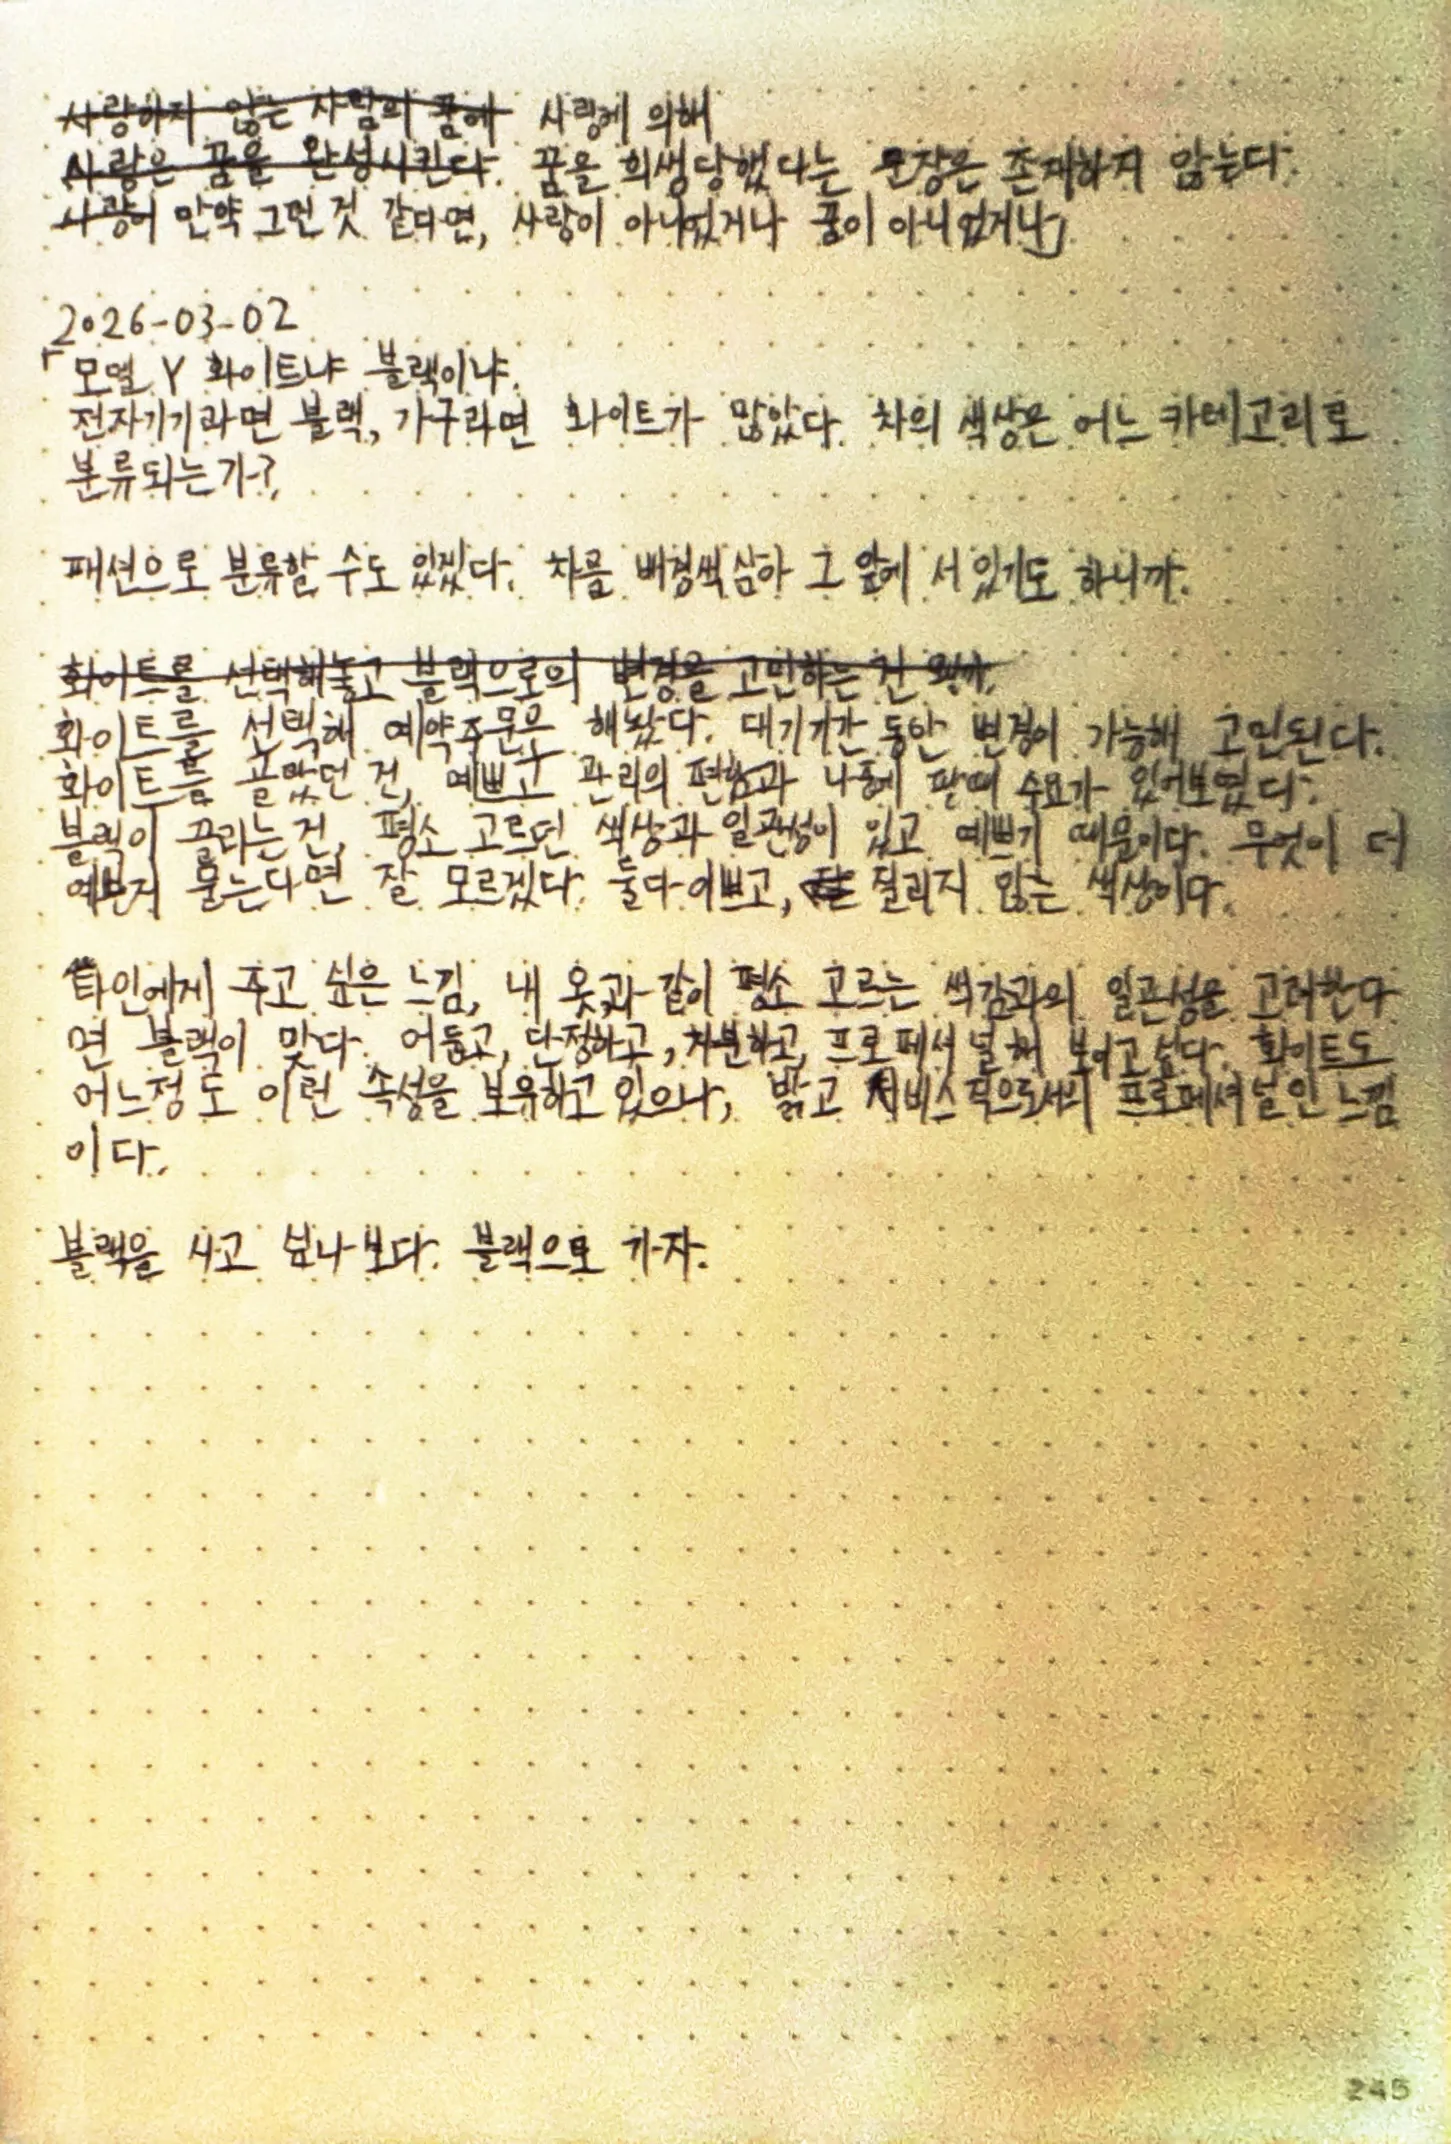 사랑하지 않는 사람의 꿈에 사랑에 의해
사랑은 꿈을 완성시킨다. 꿈을 희생당했다는 문장은 존재하지 않는다.
사랑이 만약 그런 것 같다면, 사랑이 아니었거나 꿈이 아니었거나」
2026-03-02
「모델 Y 화이트냐 블랙이냐.
전자기기라면 블랙, 가구라면 화이트가 많았다. 차의 색상은 어느 카테고리로
분류되는가?
패션으로 분류할 수도 있겠다. 차를 배경색 삼아 그 앞에 서 있기도 하니까.
화이트를 선택해놓고 블랙으로의 변경을 고민하는 건
화이트를 선택해 예약주문은 해놨다. 대기기간 동안 변경이 가능해 고민된다.
화이트를 골랐던 건, 예쁘고 관리의 편함과 나중에 팔때 수요가 있어보였다.
블랙이 끌리는 건, 평소 고르던 색상과 일관성이 있고 예쁘기 때문이다. 무엇이 더
예쁘지 묻는다면 잘 모르겠다. 둘다 이쁘고, 질리지 않는 색상이다.
타인에게 주고 싶은 느낌, 내 옷과 같이 평소 고르는 색감과의 일관성을 고려한다
면 블랙이 맞다. 어둡고, 단정하고, 차분하고, 프로페셔널해 보이고 싶다. 화이트도
어느정도 이런 속성을 보유하고 있으나, 밝고 서비스직으로서의 프로페셔널인 느낌
이다.
블랙을 사고 싶나보다. 블랙으로 가자.
245